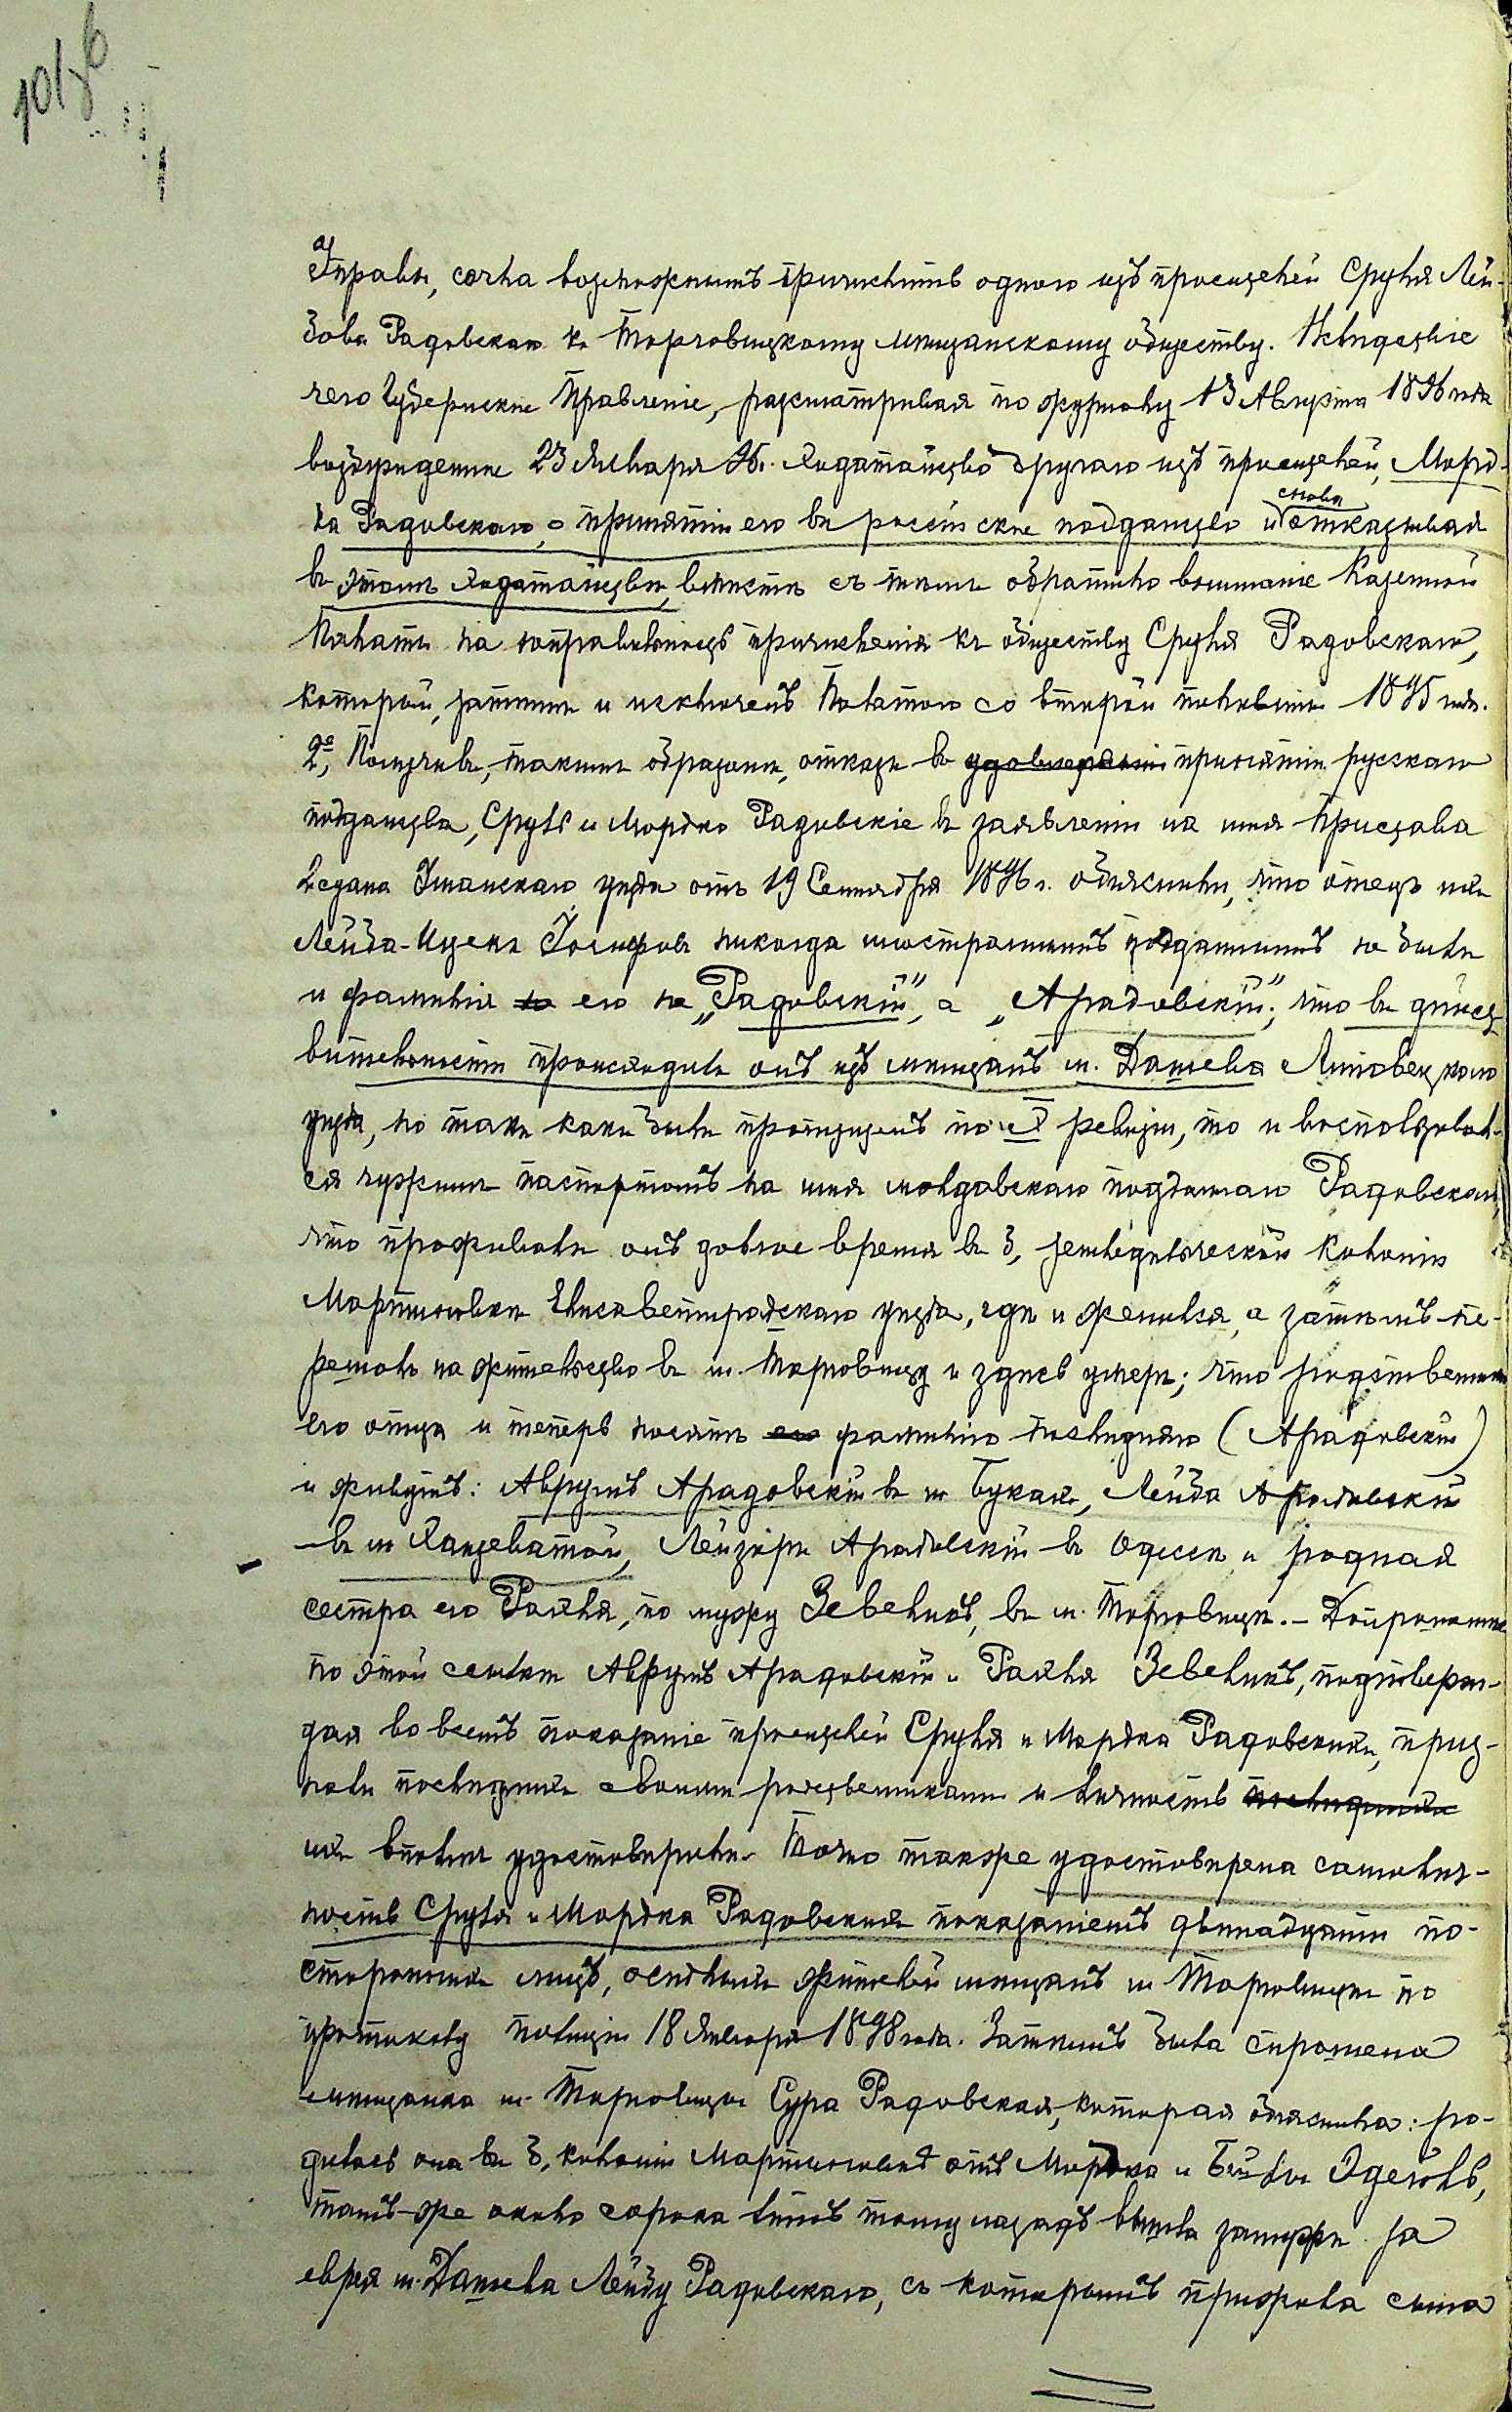 Управы, сочла возможнымъ причислить одного изъ просителей Сруля Лей-
бова Радовскаго къ Торговицкому мѣщанскому обществу. Вслѣдствіе
чего Губернское Правленіе, разсматривая по журналу 13 Августа 1896 года
возбужденное 23 Января 96 г. ходатайство другаго изъ просителей, Морд-
ка Радовскаго, о принятіи его въ россійское подданство и снова отказывая
въ этомъ ходатайствѣ, вмѣстѣ съ тѣмъ обратило вниманіе Казенной
Палаты на неправильность причисленія къ обществу Сруля Радовскаго,
который, затѣмъ и исключенъ Палатою со второй половины 1895 года.
2º, Получивъ, такимъ образомъ, отказъ въ удовлетвореніи принятіи русскаго
подданства, Сруль и Мордко Радовскіе въ заявленіи на имя Пристава
2 стана Уманскаго уѣзда отъ 19 Сентября 1896 г. объяснили, что отецъ ихъ
Лейба-Ицекъ Іосифовъ никогда иностраннымъ подданнымъ не былъ
и фамилія его не „Радовскій", а „Арадовскій"; что въ дѣйст-
вительности происходилъ онъ изъ мѣщанъ м. Дашева Липовецкаго
уѣзда, но такъ какъ былъ пропущенъ по ревизіи, то и воспользовал-
ся чужимъ паспортомъ на имя молдавскаго подданаго Радовскаго,
что проживалъ онъ долгое время въ б. земледѣльческой колоніи
Мартыновкѣ Елисаветградскаго уѣзда, гдѣ и женился, а затѣмъ пе-
решолъ на жительство въ м. Торговицу и здѣсь умеръ; что родственники
его отца и теперь носятъ его фамилію послѣднюю (Арадовскій)
и живутъ: Аврумъ Арадовскій въ м. Букахъ, Лейба Арадовскій
въ м. Хащеватой, Лейзоръ Арадовскій въ Одессѣ и родная
сестра его Рахля, по мужу Зевелюкъ, въ м. Торговицѣ. – Допрошенные
по этой ссылкѣ Аврумъ Арадовскій и Рахля Зевелюкъ, подтверж-
дая во всемъ показаніе просителей Сруля и Мордка Радовскихъ, приз-
нали послѣднихъ своими родственниками и личность послѣднихъ
ихъ вполнѣ удостовѣрили. Точно также удостовѣрена самолич-
ность Сруля и Мордка Радовскихъ показаніемъ двѣнадцати по-
стороннихъ лицъ, осѣдлыхъ жителей мѣщанъ м. Торговицы по
протоколу полиціи 18 Января 1898 года. Затѣмъ была спрошена
мѣщанка м. Торговицы Сура Радовская, которая объяснила: ро-
дилась она въ б. колоніи Мартыновкѣ отъ Мордка и Бейлы Эдель,
тамъ-же около сорока лѣтъ тому назадъ вышла замужъ за
еврея м. Дашева Лейбу Радовскаго, съ которымъ прижила сына